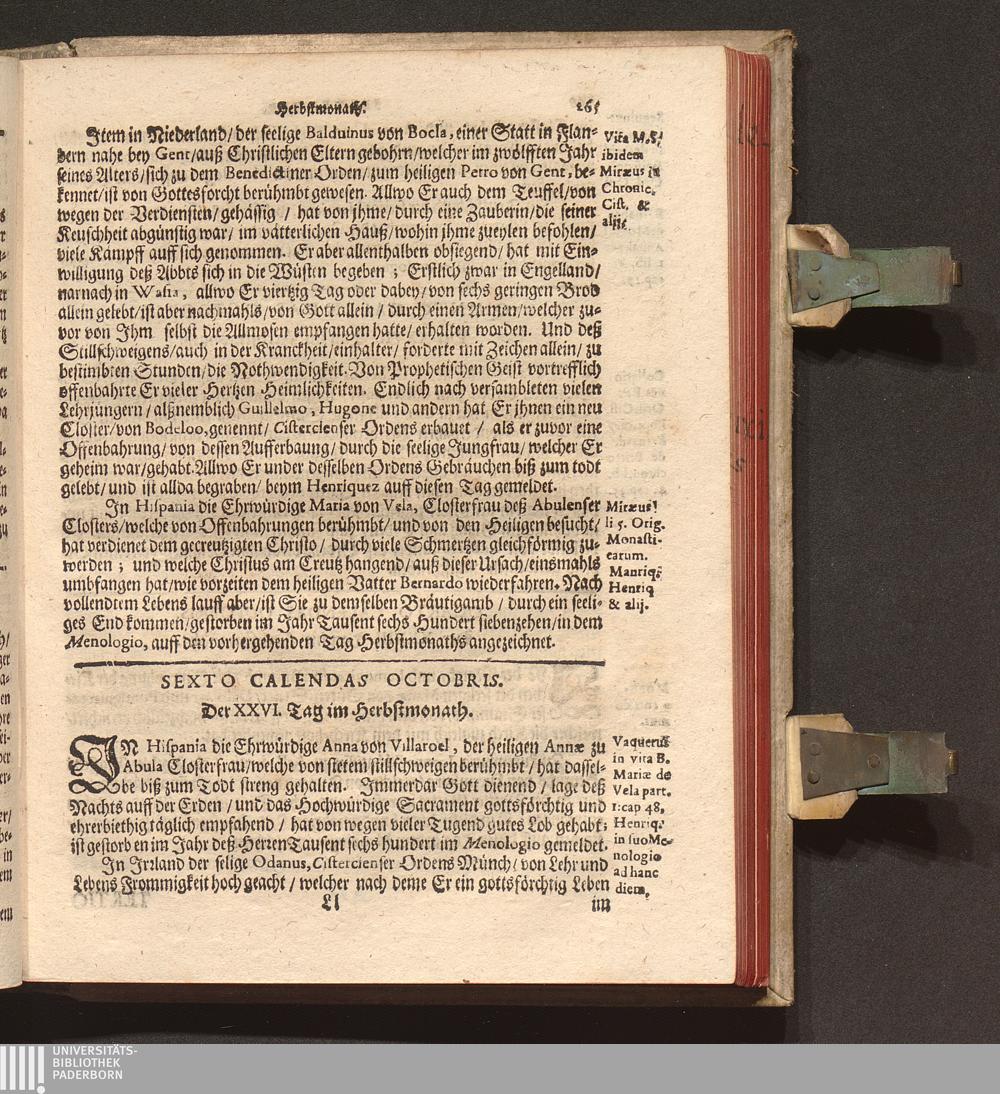 Herbstmonath. 265
Item in Niederland/ der seelige Balduinus von Bocla, einer Statt in Flan-
dern nahe bey Gent/ auß Christlichen Eltern gebohrn/ welcher im zwölfften Jahr
seines Alters/ sich zu dem Benedictiner Orden/ zum heiligen Petro von Gent, be-
kennet/ ist von Gottesforcht berühmbt gewesen. Allwo Er auch dem Teuffel/ von
wegen der Verdiensten/ gehässig / hat von jhme/ durch eine Zauberin/ die seiner
Keuschheit abgünstig war/ im vätterlichen Hauß/ wohin jhme zueylen befohlen/
viele Kämpff auff sich genommen. Er aber allenthalben obsiegend/ hat mit Ein-
willigung deß Abbts sich in die Wüsten begeben ; Erstlich zwar in Engelland/
narnach in Wasia, allwo Er viertzig Tag oder dabey/ von sechs geringen Brod
allein gelebt/ ist aber nachmahls/ von Gott allein / durch einen Armen/ welcher zu-
vor von Ihm selbst die Allmosen empfangen hatte/ erhalten worden. Und deß
Stillschweigens/ auch in der Kranckheit/ einhalter/ forderte mit Zeichen allein/ zu
bestimbten Stunden/ die Nothwendigkeit. Von Prophetischen Geist vortrefflich
offenbahrte Er vieler Hertzen Heimlichkeiten. Endlich nach versambleten vielen
Lehrjüngern/ alßnemblich Guillelmo, Hugone und andern hat Er jhnen ein neu
Closter/ von Bodeloo, genennt/ Cistercienser Ordens erbauet / als er zuvor eine
Offenbahrung/ von dessen Aufferbaung/ durch die seelige Jungfrau/ welcher Er
geheim war/ gehabt. Allwo Er under desselben Ordens Gebräuchen biß zum todt
gelebt/ und ist allda begraben/ beym Henriquez auff diesen Tag gemeldet.
Vita M.S.
ibidem
Miræus in
Chronic.
Cist. &
alije
In Hispania die Ehrwürdige Maria von Vela, Closterfrau deß Abulenser
Closters/ welche von Offenbahrungen berühmbt/ und von den Heiligen besucht/
hat verdienet dem gecreutzigten Christo / durch viele Schmertzen gleichförmig zu-
werden ; und welche Christus am Creutz hangend/ auß dieser Ursach/ einsmahls
umbfangen hat/ wie vorzeiten dem heiligen Vatter Bernardo wiederfahren. Nach
vollendtem Lebens lauff aber/ ist Sie zu demselben Bräutigamb / durch ein seeli-
ges End kommen/ gestorben im Jahr Tausent sechs Hundert siebenzehen/ in dem
Menologio, auff den vorhergehenden Tag Herbstmonaths angezeichnet.
Miræus
li 5. Orig.
Monasti-
earum.
Manriqs
Henriq
& alij.
SEXTO CALENDAS OCTOBRIS.
Der XXVI. Tag im Herbstmonath.
IN Hispania die Ehrwürdige Anna von Villaroel, der heiligen Annæ zu
Abula Closterfrau/ welche von stetem stillschweigen berühmbt / hat dassel-
be biß zum Todt streng gehalten. Immerdar Gott dienend / lage deß
Nachts auff der Erden / und das Hochwürdige Sacrament gottsförchtig und
ehrerbiethig täglich empfahend / hat von wegen vieler Tugend gutes Lob gehabt;
ist gestorben im Jahr deß Herren Tausent sechs hundert im Menologio gemeldet.
In Irrland der selige Odanus, Cistercienser Ordens Münch/ von Lehr und
Lebens Frommigkeit hoch geacht / welcher nach deme Er ein gottsförchtig Leben
Vaquerus
in vita B.
Mariæ de
Vela part.
1: cap 48,
Henriq.
in suo Me-
nologio
ad hanc
diem,
Ll im
UNIVERSITÄTS-
BIBLIOTHEK
PADERBORN